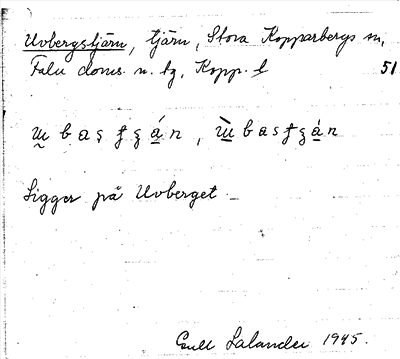 Uvbergstjärn, tjärn, Stora Kopparbergs sn,
Falu doms n. tg, Kopp. l 51
Ligger på Uvberget.
Gull Lalander 1945.